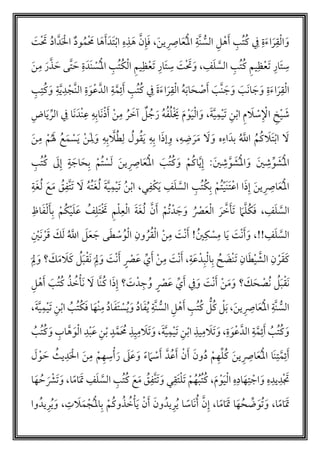 وَالْقِرَاءَةِ فِي كُتُبِ أَهْلِ السُّنَّةِ الْمُعَاصِرِينَ، فَإِنَّ هَذِهِ ابْتَدَأَهَا مُحَمَّدُ الْحَدَّادُ تَحْتَ
سِتَارِ تَعْظِيمِ كُتُبِ السَّلَفِ، وَتَحْتَ سِتَارِ تَعْظِيمِ الْكُتُبِ الْمُسْنَدَةِ حَتَّى حَذَّرَ مِنَ
الْقِرَاءَةِ وَجَانَبَ وَجَنَّبَ أَصْحَابَهُ الْقِرَاءَةَ فِي كُتُبِ أَئِمَّةِ الدَّعْوَةِ النَّجْدِيَّةِ وَكُتُبِ
شَيْخِ الْإِسْلَامِ ابْنِ تَيْمِيَّةَ، وَالْيَوْمَ يَخْلُفُهُ رَجُلٌ آخَرُ مِنْ أَذْنَابِهِ عِنْدَنَا فِي الرِّيَاضِ
لَا ابْتَلَاكُمُ اللَّهُ بِدَاءِهِ وَلَا مَرَضِهِ، وَإِذَا بِهِ يَقُولُ لِطُلَّابِهِ وَلِمَنْ يَسْمَعُ لَهُمْ مِنَ
الْمُشْرِفِينَ وَالْمُشْرِفِينَ: إِيَّاكُمْ وَكُتُبَ الْمُعَاصِرِينَ لَسْتُمْ بِحَاجَةٍ إِلَى كُتُبِ
الْمُعَاصِرِينَ إِذَا اعْتَنَيْتُمْ بِكُتُبِ السَّلَفِ يَكْفِي، ابْنُ تَيْمِيَّةَ لُغَتُهُ لَا تَتَّفِقُ مَعَ لُغَةِ
السَّلَفِ، فَكُلَّمَا تَأَخَّرَ الْعَصْرُ وَجَدْتُمْ أَنَّ لُغَةَ الْعِلْمِ تَخْتَلِفُ عَلَيْكُمْ بِأَلْفَاظِ
السَّلَفِ!!، وَأَنْتَ يَا مِسْكِينُ! أَنْتَ مِنَ الْقُرُونِ الْوُسْطَى جَعَلَ اللَّهُ لَكَ قَرْنَيْنِ
كَقَرْنِ الشَّيْطَانِ! فَتَنْضَحُ بِالْبِدْعَةِ، أَنْتَ مِنْ أَيِّ عَصْرٍ أَنْتَ وَلِمَ نَقْبَلُ كَلَامَكَ؟ وَلِمَ
نَقْبَلُ نُصْحَكَ؟ وَمِنْ أَنْتَ وَفِي أَيِّ عَصْرٍ وُجِدْتَ؟ إِذَا كُنَّا لَا نَأْخُذُ كُتُبَ أَهْلِ
السُّنَّةِ الْمُعَاصِرِينَ، بَلْ كُلُّ كُتُبِ أَهْلِ السُّنَّةِ يُفَادُ وَيُسْتَفَادُ مِنْهَا كَكُتُبِ ابْنِ تَيْمِيَّةَ،
وَكُتُبِ أَئِمَّةِ الدَّعْوَةِ، وَتَلَامِيذِ ابْنِ تَيْمِيَّةَ، وَتَلَامِيذِ مُحَمَّدِ بْنِ عَبْدِ الْوَهَّابِ وَكُتُبُ
أَئِمَّتِنَا الْمُعَاصِرِينَ كُلِّهِمْ دُونَ أَنْ أَعُدَّ أَسْمَاءً وَعَلَى رَأْسِهِمْ مِنَ الْحَدِيثِ حَوْلَ
تَجْدِيدِهِ وَاجْتِهَادِهِ الْيَوْمَ، كُتُبُهُمْ تَلْتَقِي وَتَتَّفِقُ مَعَ كُتُبِ السَّلَفِ تَمَامًا، وَشَرْحُهَا
تَمَامًا، وَتُوَضِّحُهَا تَمَامًا، إِنَّ أُنَاسًا يُرِيدُونَ أَنْ يَأْخُذُوكُمْ بِالْمُجْمَلَاتِ، وَيُرِيدُوا